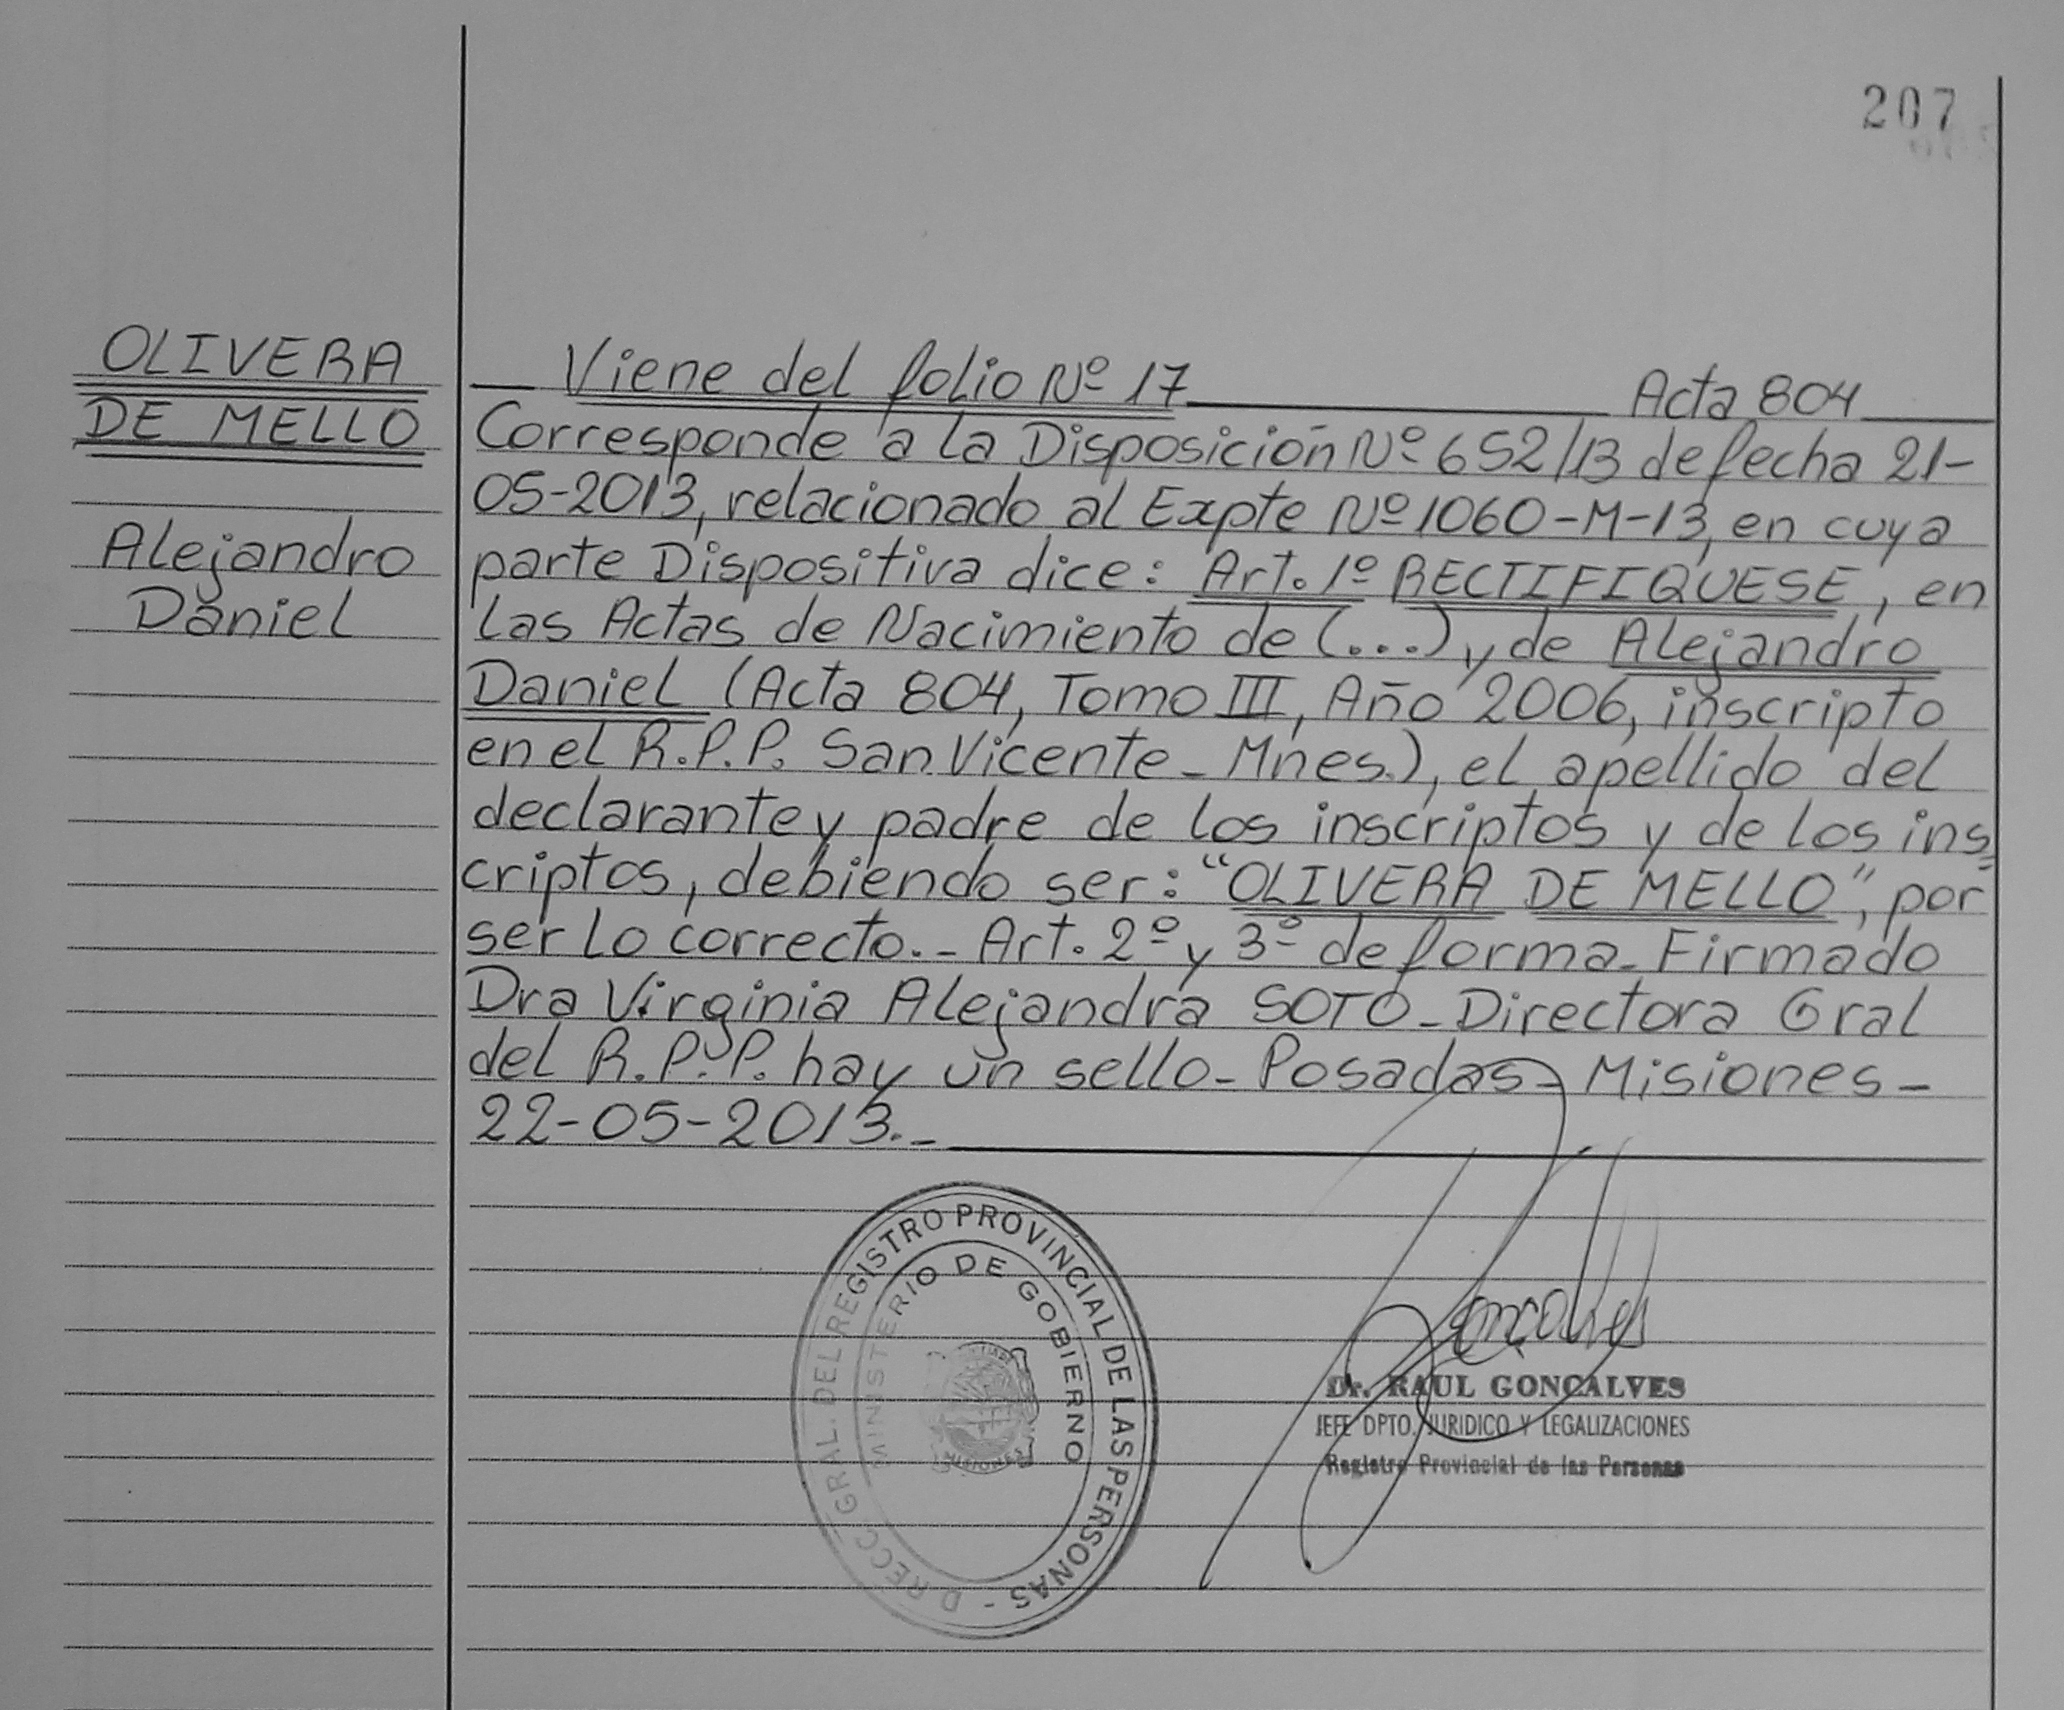 207
OLIVERA
DE MELLO
Alejandro
Daniel
Viene del folio Nº 17 Acta 804
Corresponde a la Disposición Nº 652/13 de fecha 21-
05-2013, relacionado al Expte Nº 1060-M-13, en cuya
parte Dispositiva dice: Art. 1º RECTIFIQUESE, en
las Actas de Nacimiento de (...) y de Alejandro
Daniel (Acta 804, Tomo III, Año 2006, inscripto
en el R.P.P. San Vicente - Mnes.), el apellido del
declarante y padre de los inscriptos y de los ins
criptos, debiendo ser: "OLIVERA DE MELLO", por
ser lo correcto.- Art. 2º y 3º de forma - Firmado
Dra Virginia Alejandra SOTO - Directora Gral
del R.P.P. hay un sello - Posadas - Misiones -
22-05-2013.-
DIRECC. GRAL. DEL REGISTRO PROVINCIAL DE LAS PERSONAS -
MINISTERIO DE GOBIERNO
MISIONES
Goncalves
Dr. RAUL GONCALVES
JEFE DPTO. JURIDICO Y LEGALIZACIONES
Registro Provincial de las Personas